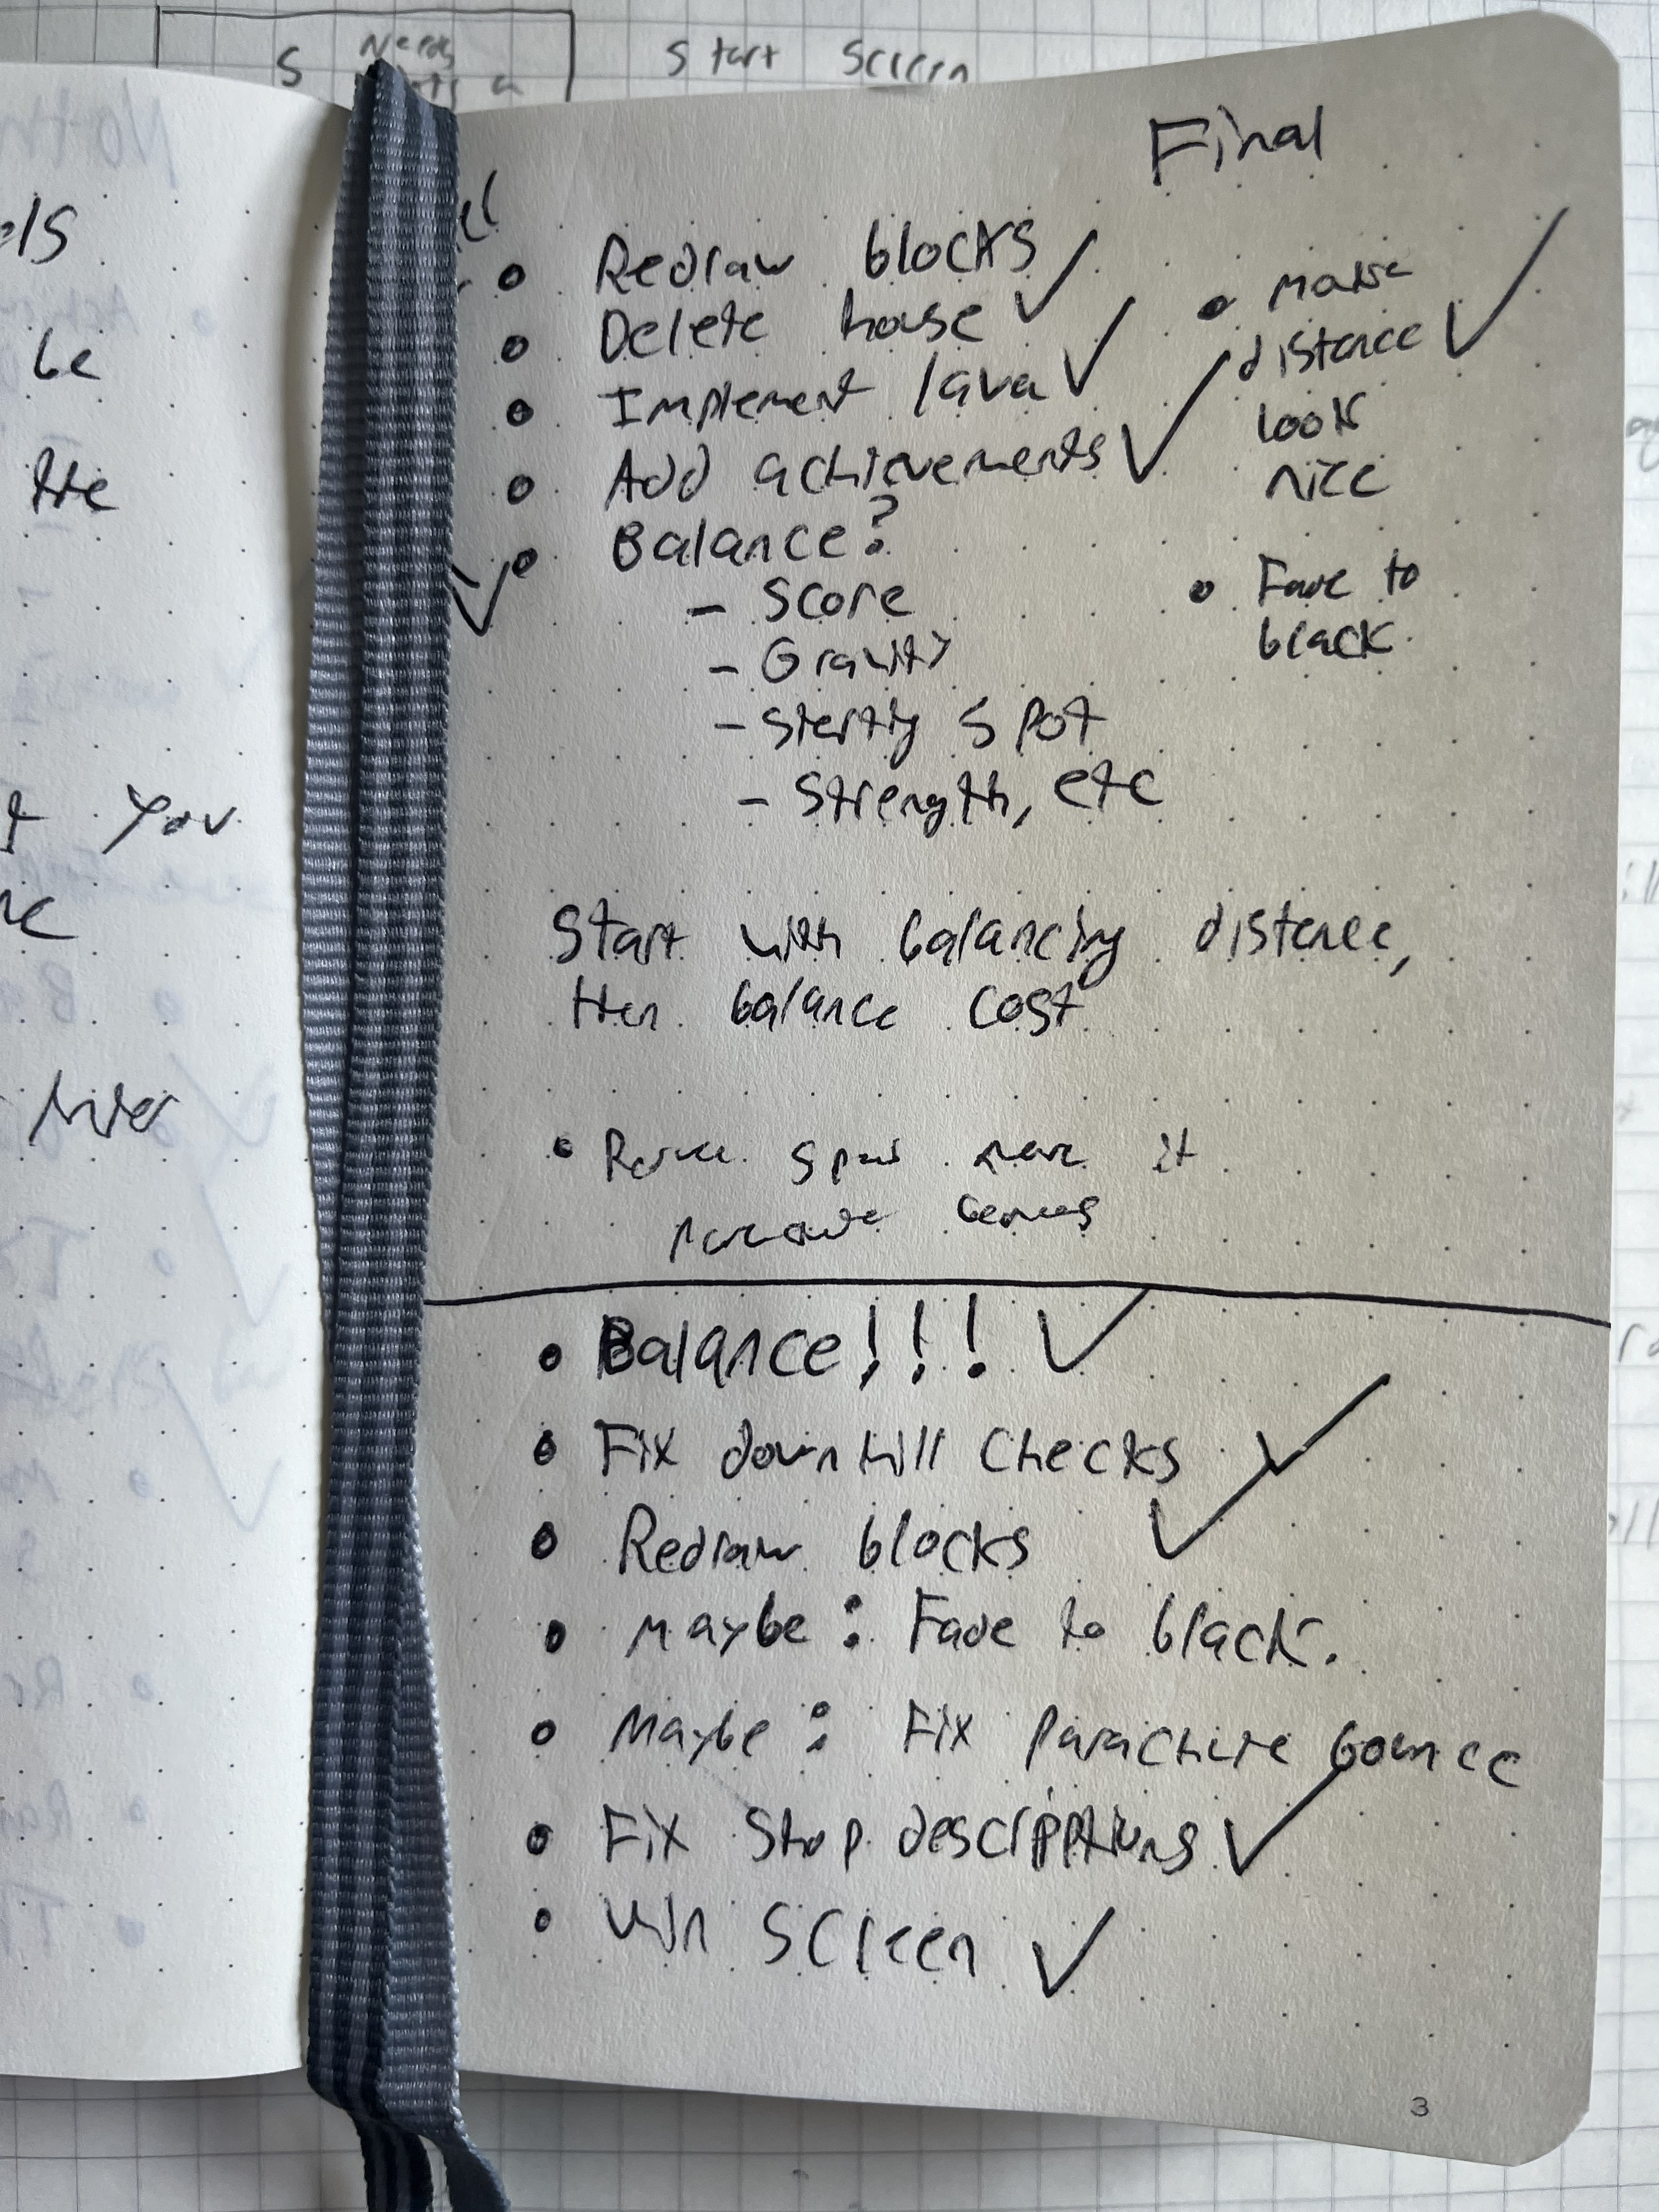 S Needs
Start Screen
els
be
the
t you
Final
• Redraw blocks ✓
• Delete house ✓
• Implement lava ✓
• Add achievements ✓
✓ • Balance?
– Score
– Gravity
– Starting spot
– Strength, etc
• Make
distance ✓
look
nice
• Fade to
black
Start with balancing distance,
then balance cost
• it
• Balance!!! ✓
• Fix downhill checks ✓
• Redraw blocks ✓
• Maybe: Fade to black.
• Maybe: Fix parachute bounce
• Fix shop descripptions ✓
• Win screen ✓
3